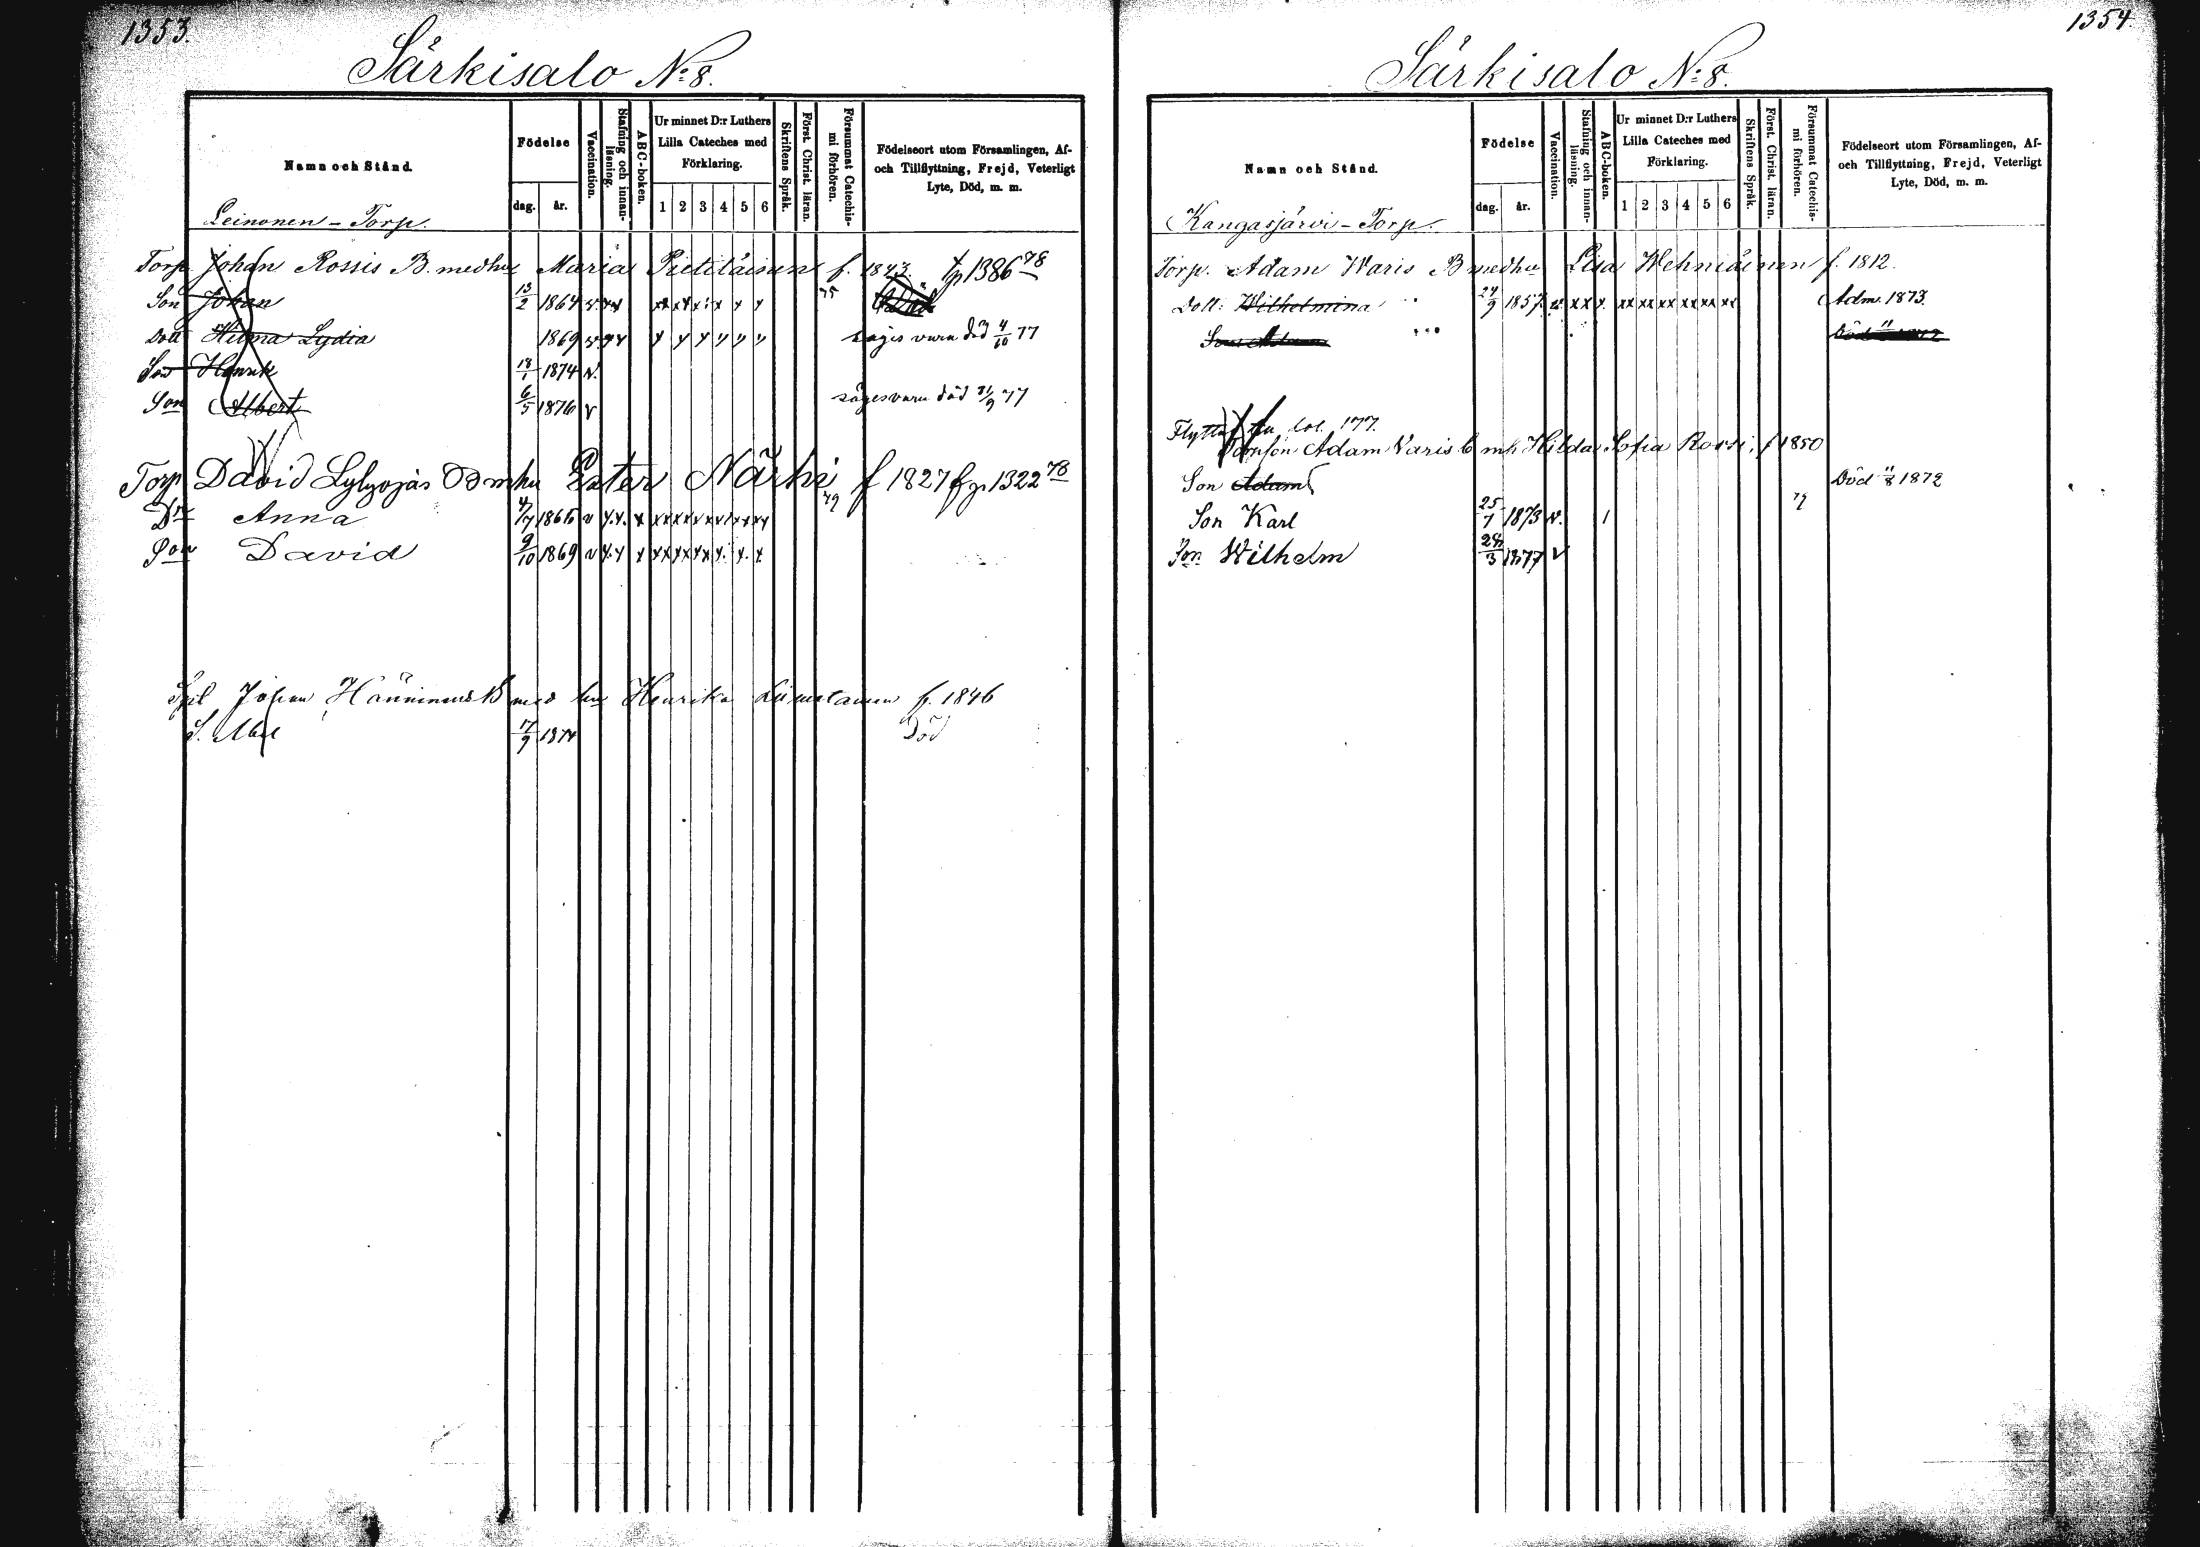 1353.
Särkisalo N:8.
Namn och Stånd.
Födelse
dag. år.
Vaccination.
Stafning och innan-läsning.
ABC-boken.
Ur minnet D:r Luthers Lilla Cateches med Förklaring.
1 2 3 4 5 6
Skriftens Språk.
Först. Christ. läran.
Försummat Catechis-mi förhören.
Födelseort utom Församlingen, Af- och Tillflyttning, Frejd, Veterligt Lyte, Död, m. m.
Leinonen - Torp.
Torp. Johan Rossis B. medhu Maria Pietiläinen f. 1843. fp 1386 78
Son Johan 13/2 1864 75
Dott Hilma Lydia 1869 säges vara död 4/10 77
Son Henrik 18/1 1874 v.
Son Albert 6/5 1876 v säges vara död 21/9 77
Torp David Lylyojas B mhu Ester Närhi f 1827 fp 1322 78
Dr Anna 4/7 1865 v 79
Son David 9/10 1869 v
Johan Hänninen B med hu Henrika Liimatainen f. 1846
S. Abel 17/9 1874 Död
1354.
Särkisalo N:8.
Namn och Stånd.
Födelse
dag. år.
Vaccination.
Stafning och innan-läsning.
ABC-boken.
Ur minnet D:r Luthers Lilla Cateches med Förklaring.
1 2 3 4 5 6
Skriftens Språk.
Först. Christ. läran.
Försummat Catechis-mi förhören.
Födelseort utom Församlingen, Af- och Tillflyttning, Frejd, Veterligt Lyte, Död, m. m.
Kangasjärvi - Torp.
Torp. Adam Waris B medhu Lisa Wehniäinen f. 1812.
Dott: Wilhelmina 24/9 1857 Adm. 1873.
Flytta 177.
Adam Varis b mh Hilda Sofia Rossi, f 1850
Son Adam Död 11/8 1872
Son Karl 25/7 1873 v. 1
Son Wilhelm 28/3 1877 v